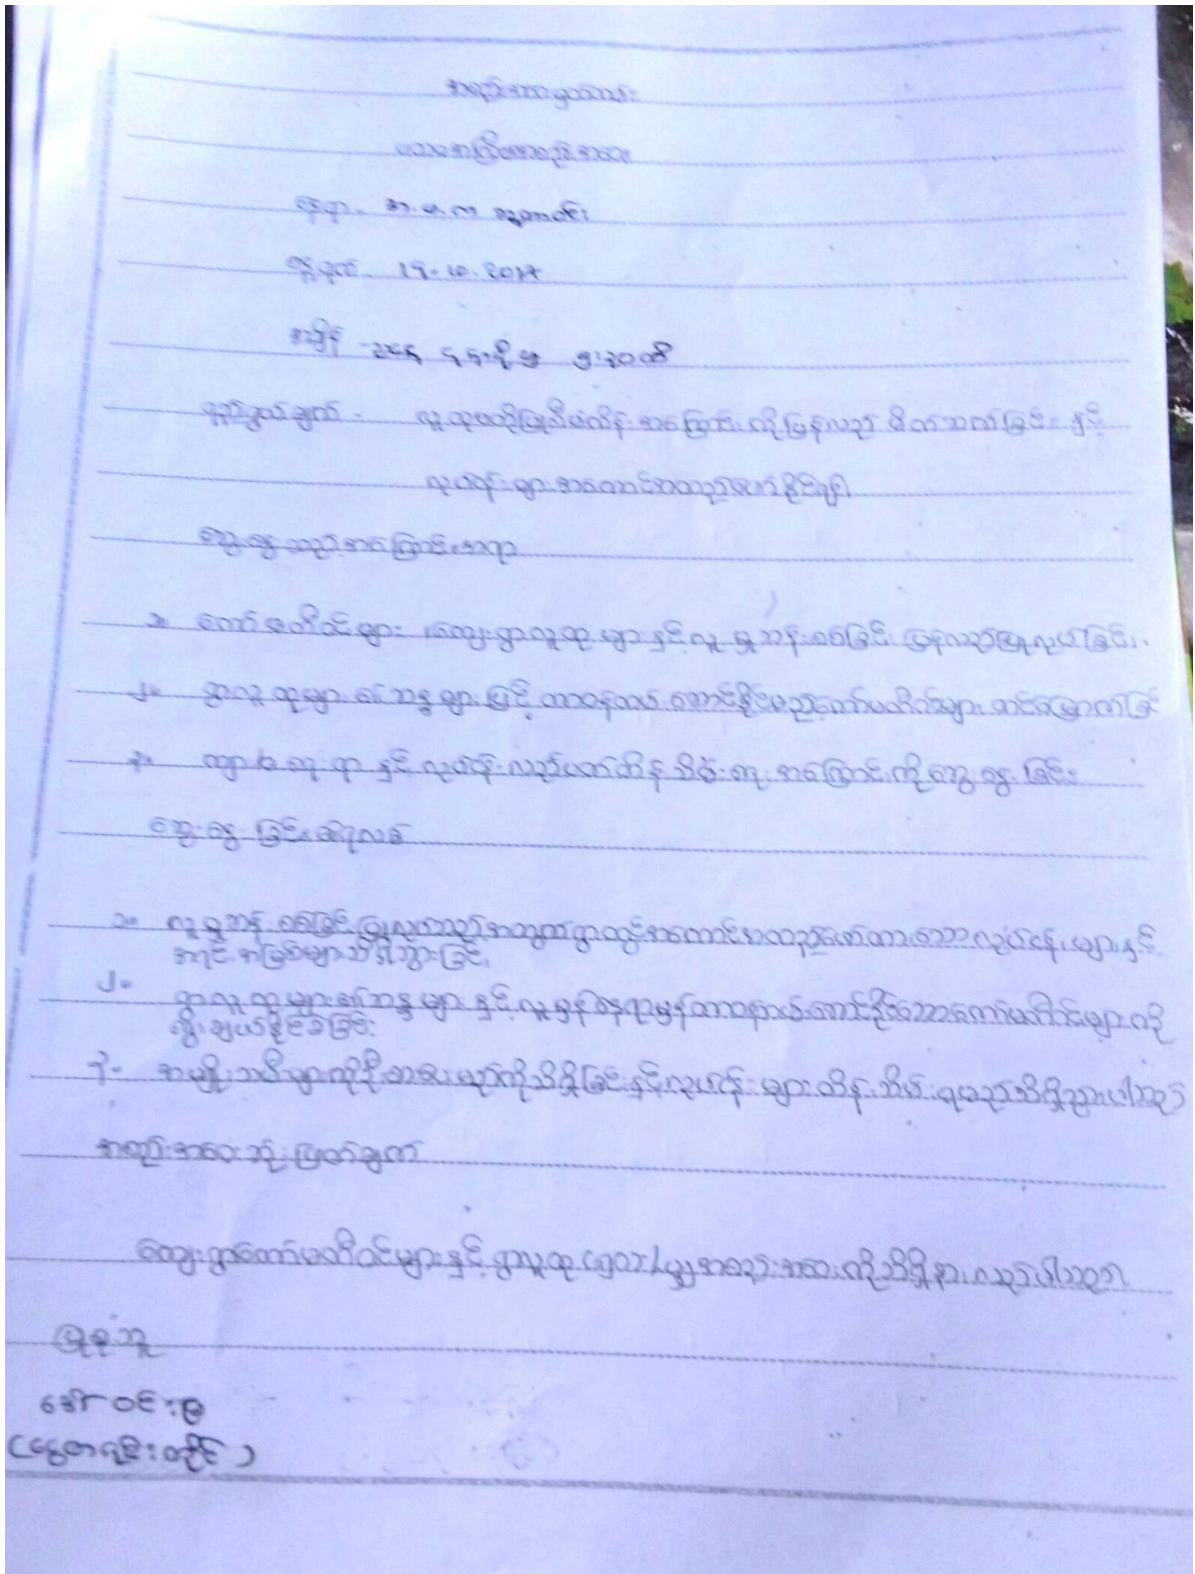 အစည်းအဝေးမှတ်တမ်း
ပထမအကြိမ်အစည်းအဝေး
နေရာ - အ.မ.က
နေ့ရက် -
အချိန် - မှ
ရည်ရွယ်ချက် - လူထုဗဟိုပြုစီမံကိန်းအကြောင်းကိုပြန်လည် မိတ်ဆက်ခြင်း နှင့်
လုပ်ငန်းများအကောင်အထည်ဖော်နိုင်ရန်
ဆွေးနွေးသည့်အကြောင်းအရာ
၁။ ကော်မတီဝင်များ ကျေးရွာလူထုများနှင့်လူမှုဆန်းစစ်ခြင်း ပြန်လည်ပြုလုပ်ခြင်း
၂။ ရွာလူထုများ၏ဆန္ဒများဖြင့် တာဝန်ထမ်းဆောင်နိုင်မည့်ကော်မတီဝင်များ တင်မြှောက်ခြင်း
၃။ ကျား/မရေးရာ နှင့် လုပ်ငန်းလည်ပတ်ထိန်းသိမ်းရေးအကြောင်းကိုဆွေးနွေးခြင်း
ဆွေးနွေးခြင်းရလဒ်
၁။ လူမှုဆန်းစစ်ခြင်းပြုလုပ်သည့်အတွက်ရွာတွင်အကောင်အထည်ဖော်ထားသောလုပ်ငန်းများနှင့်
အရင်းအမြစ်များသိရှိသွားခြင်း
၂။ ရွာလူထုများ၏ဆန္ဒများနှင့်လူမှန်နေရာမှန်တာဝန်ထမ်းဆောင်နိုင်သောကော်မတီဝင်များကို
ရွေးချယ်နိုင်ခဲ့ခြင်း
၃။ အမျိုးသမီးများကိုဦးစားပေးမည်ကိုသိရှိခြင်းနှင့်လုပ်ငန်းများထိန်းသိမ်းရမည်သိရှိသွားပါသည်
အစည်းအဝေးဆုံးဖြတ်ချက်
ကျေးရွာကော်မတီဝင်များနှင့် ရွာလူထု အစည်းအဝေးကိုသိရှိနားလည်ပါသည်။
ပြုစုသူ
ဒေါ်ဝင်းမြ